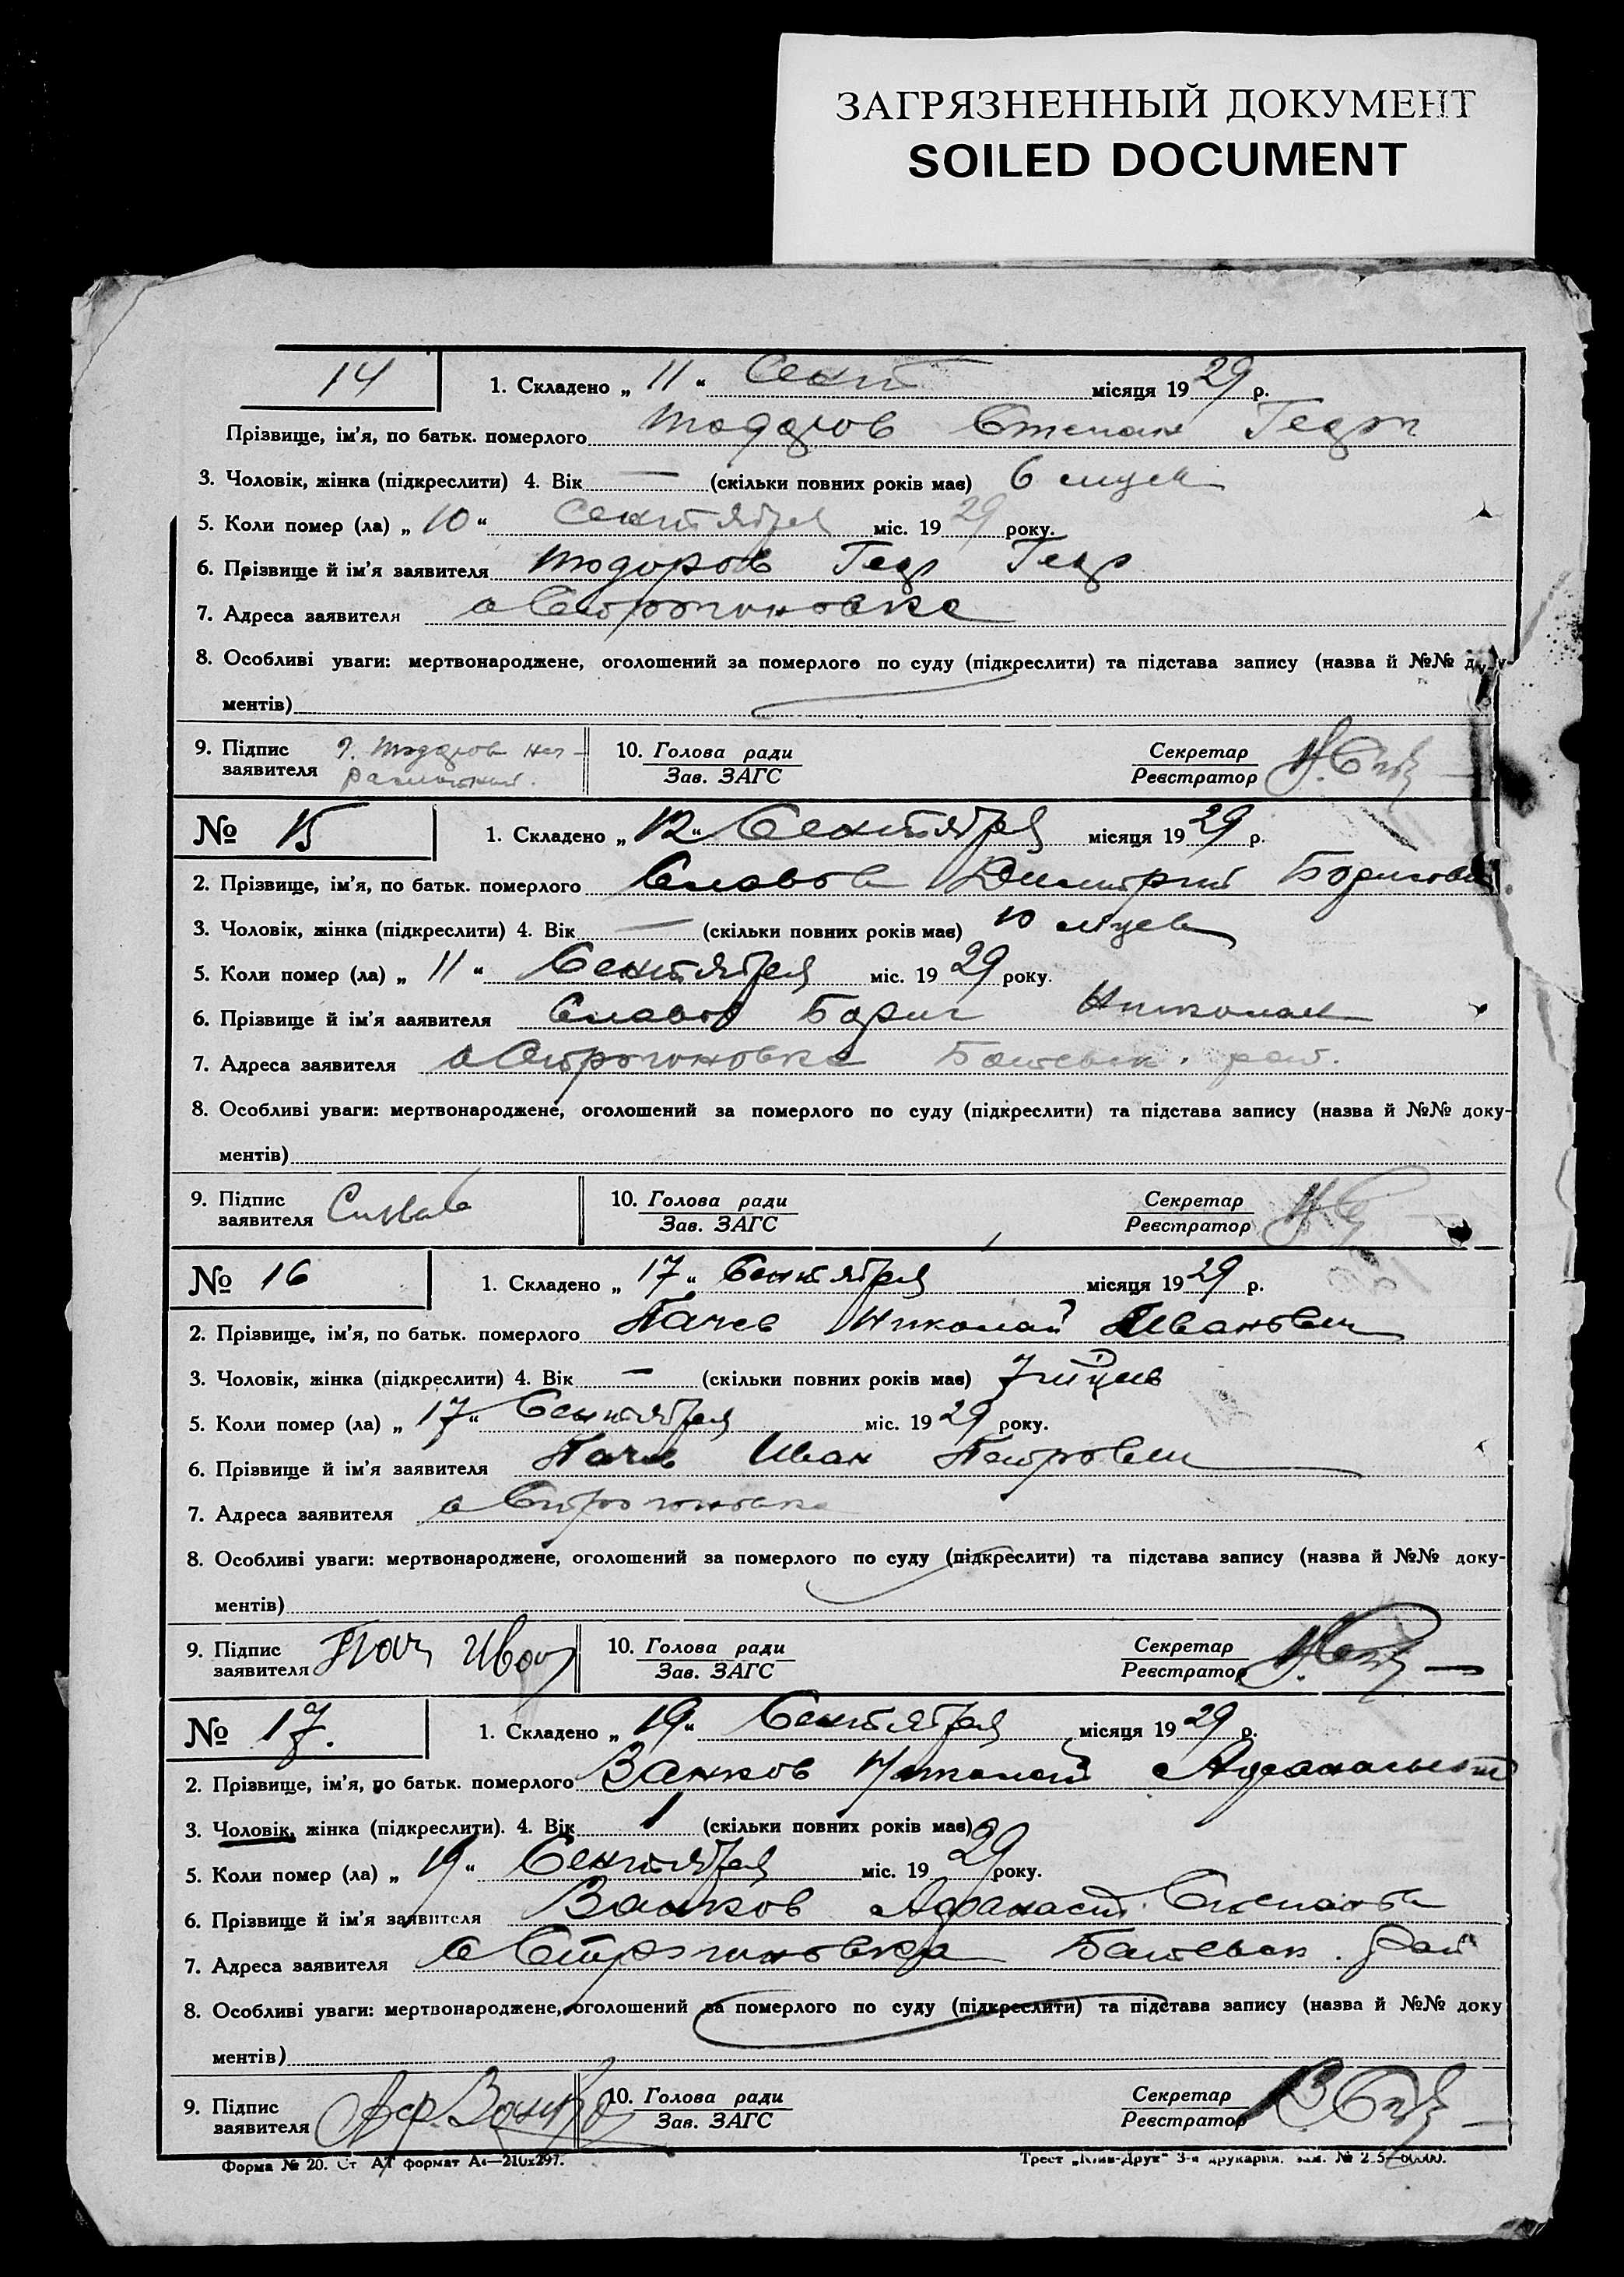 ЗАГРЯЗНЕННЫЙ ДОКУМЕНТ
SOILED DOCUMENT
14
1. Складено „ 11 “ Сент місяця 1929 р.
Прізвище, ім’я, по батьк. померлого Тодоров Степан Геор
3. Чоловік, жінка (підкреслити) 4. Вік — (скільки повних років має) 6 месяц
5. Коли помер (ла) „ 10 “ Сентября міс. 19 29 року.
6. Прізвище й ім’я заявителя Тодоров Геор Геор
7. Адреса заявителя с Строгоновка
8. Особливі уваги: мертвонароджене, оголошений за померлого по суду (підкреслити) та підстава запису (назва й №№ доку-
ментів)
9. Підпис заявителя Тодоров
10. Голова ради
Зав. ЗАГС
Секретар
Реєстратор
№ 15
1. Складено „ 12 “ Сентября місяця 1929 р.
2. Прізвище, ім’я, по батьк. померлого Славов Димитрий Борисов
3. Чоловік, жінка (підкреслити) 4. Вік — (скільки повних років має) 10 м-цев
5. Коли помер (ла) „ 11 “ Сентября міс. 19 29 року.
6. Прізвище й ім’я заявителя Славов Борис Николаев
7. Адреса заявителя с Строгоновка рай.
8. Особливі уваги: мертвонароджене, оголошений за померлого по суду (підкреслити) та підстава запису (назва й №№ доку-
ментів)
9. Підпис заявителя
10. Голова ради
Зав. ЗАГС
Секретар
Реєстратор
№ 16
1. Складено „ 17 “ Сентября місяця 1929 р.
2. Прізвище, ім’я, по батьк. померлого Пачев Николай Иванович
3. Чоловік, жінка (підкреслити) 4. Вік — (скільки повних років має) 7 м-цев
5. Коли помер (ла) „ 17 “ Сентября міс. 19 29 року.
6. Прізвище й ім’я заявителя Пачев Иван Петрович
7. Адреса заявителя с Строгоновка
8. Особливі уваги: мертвонароджене, оголошений за померлого по суду (підкреслити) та підстава запису (назва й №№ доку-
ментів)
9. Підпис заявителя Пач Иван
10. Голова ради
Зав. ЗАГС
Секретар
Реєстратор
№ 17.
1. Складено „ 19 “ Сентября місяця 1929 р.
2. Прізвище, ім’я, по батьк. померлого Ванков Николай Афанасьевич
3. Чоловік, жінка (підкреслити). 4. Вік 1 (скільки повних років має)
5. Коли помер (ла) „ 19 “ Сентября міс. 19 29 року.
6. Прізвище й ім’я заявителя Ванков Афанасий Степанов
7. Адреса заявителя с Строгоновка рай
8. Особливі уваги: мертвонароджене, оголошений за померлого по суду (підкреслити) та підстава запису (назва й №№ доку
ментів)
9. Підпис заявителя Аф. Ванков
10. Голова ради
Зав. ЗАГС
Секретар
Реєстратор
Форма № 20. Ст АТ формат А4—210х297.
Трест „Київ-Друк“ 3-я друкарня.